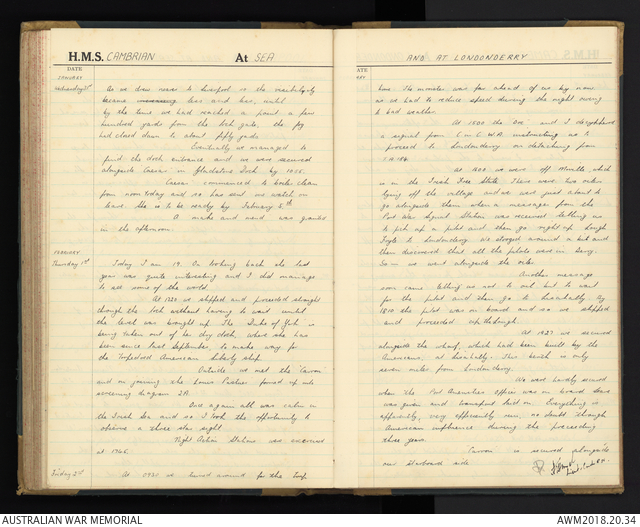 H.M.S. CAMBRIAN At SEA
DATE
JANUARY
Wednesday 31st As we drew nearer to Liverpool so the visibility
became less and less, until
by the time we had reached a point a few
hundred yards from the lock gate, the fog
had closed down to about fifty yards.
Eventually we managed to
find the dock entrance and we were secured
alongside Caesar in Gladstone Dock by 1035.
Caesar commenced to boiler clean
from noon today and so has sent one watch on
leave. She is to be ready by February 8th
A make and mend was granted
in the afternoon.
FEBRUARY
Thursday 1st Today I am 19. On looking back the last
year was quite interesting and I did manage
to see some of the world.
At 1220 we slipped and proceeded straight
through the lock without having to wait until
the level was brought up. The Duke of York is
being taken out of her dry dock, where she has
been since last September, to make way for
the torpedoed American liberty ship.
Outside we met the "Cavron"
and on joining the house Pasteur formed up into
screening diagram 2A.
Once again all was calm in
the Irish Sea and so I took the opportunity to
observe a three star sight.
Night Action Stations was exercised
at 1745.
Friday 2nd At 0921 we turned around for the
AND AT LONDONDERRY
ATE
time. The monster was far ahead of us by now
as we had to reduce speed during the night owing
to bad weather.
At 1500 the Doc and I decyphered
a signal from C in C W.A instructing us to
proceed to Londonderry on detaching from
At 1600 we were off Moville which
is in the Irish Free State. There were two oilers
lying off the village and we were just about to
go alongside them when a message from the
Port War Signal Station was received telling us
to pick up a pilot and then go right up Lough
Foyle to Londonderry. We stooged around a bit and
then discovered that all the pilots were in Derry.
So in we went alongside the oiler.
Another message
soon came telling us not to oil but to wait
for the pilot and then go to Lisahally. By
1810 the pilot was on board and so we slipped
and proceeded up through.
At 1927 we secured
alongside the wharf, which had been built by the
Americans, at Lisahally. This berth is only
seven miles from Londonderry.
We were hardly secured
when the Port Amenities Officer was on board
was given and transport laid on. Everything is
apparently, very efficiently run, no doubt through
American influence during the preceeding
three years.
"Cavron" is secured alongside
our starboard side.
AUSTRALIAN WAR MEMORIAL AWM2018.20.34